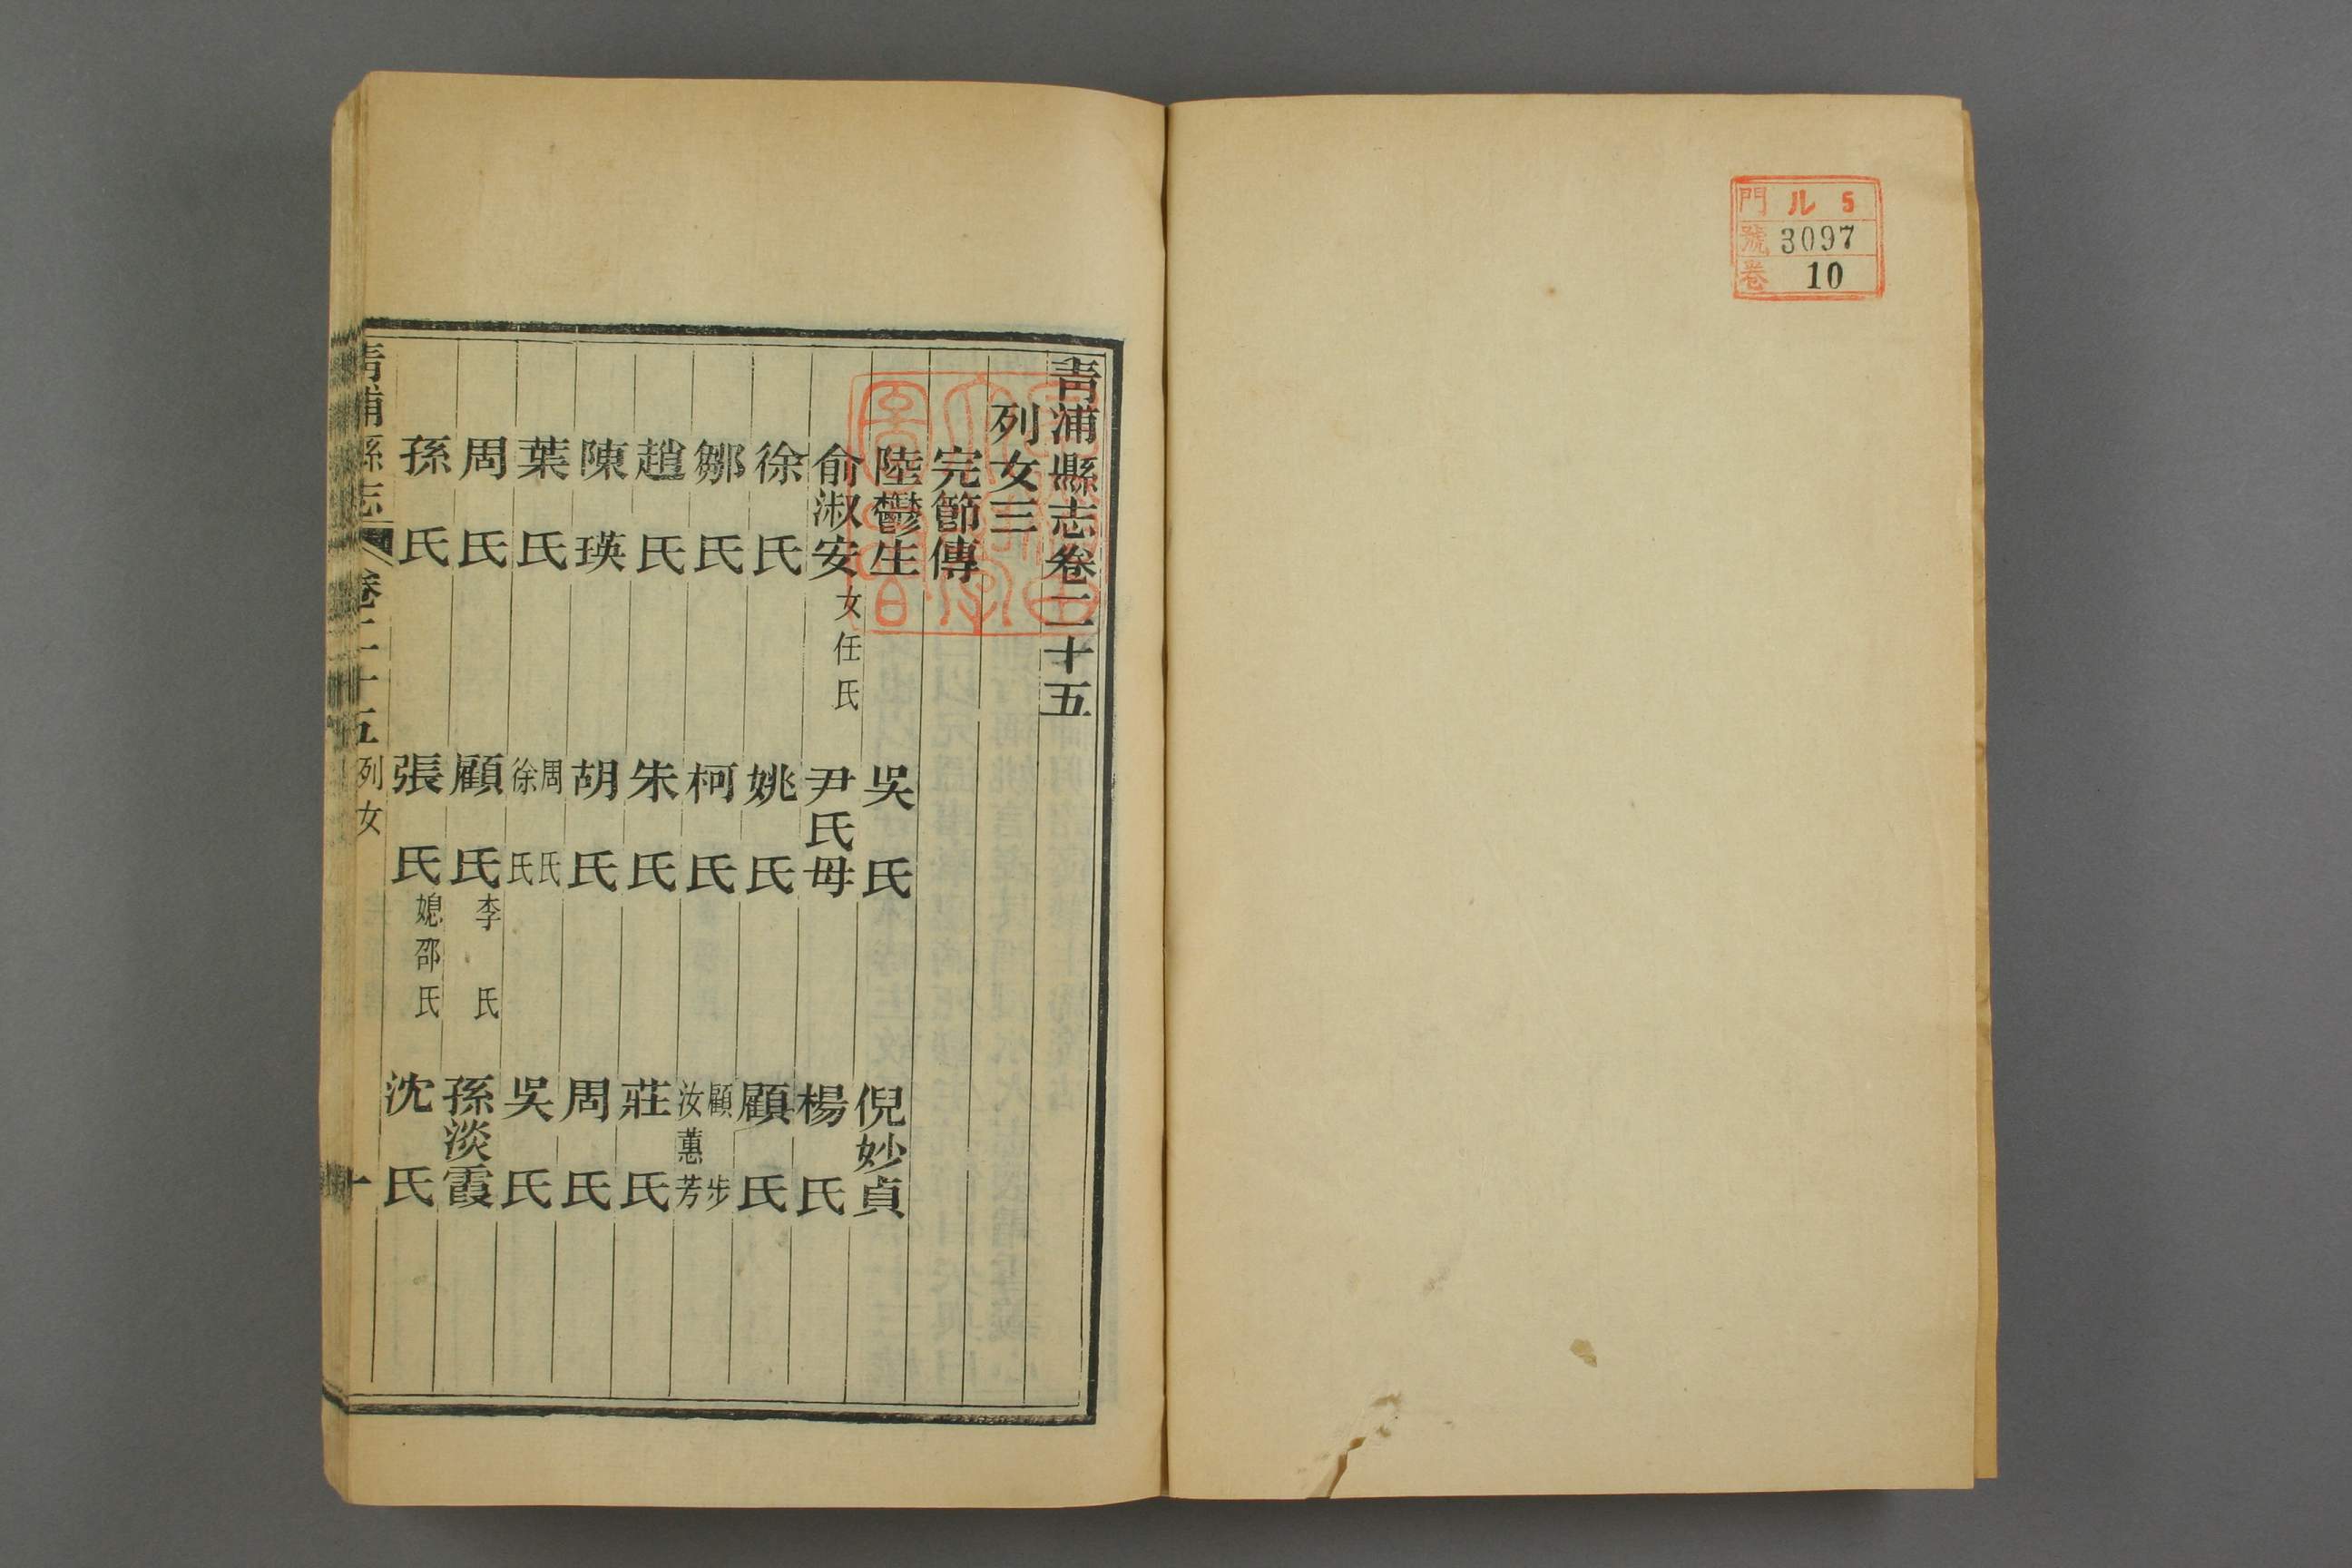 門 ル 5
號 3097
卷 10
青浦縣志卷二十五
列女三
完節傳
陸鬱生 吳氏 倪妙貞
俞淑安 女任氏 尹氏母 楊氏
徐氏 姚氏 顧氏
鄒氏 柯氏 顧步 汝蕙芳
趙氏 朱氏 莊氏
陳瑛 胡氏 周氏
葉氏 周氏 徐氏 吳氏
周氏 顧氏 李氏 孫淡霞
孫氏 張氏 媳邵氏 沈氏
青浦縣志 卷二十五 列女